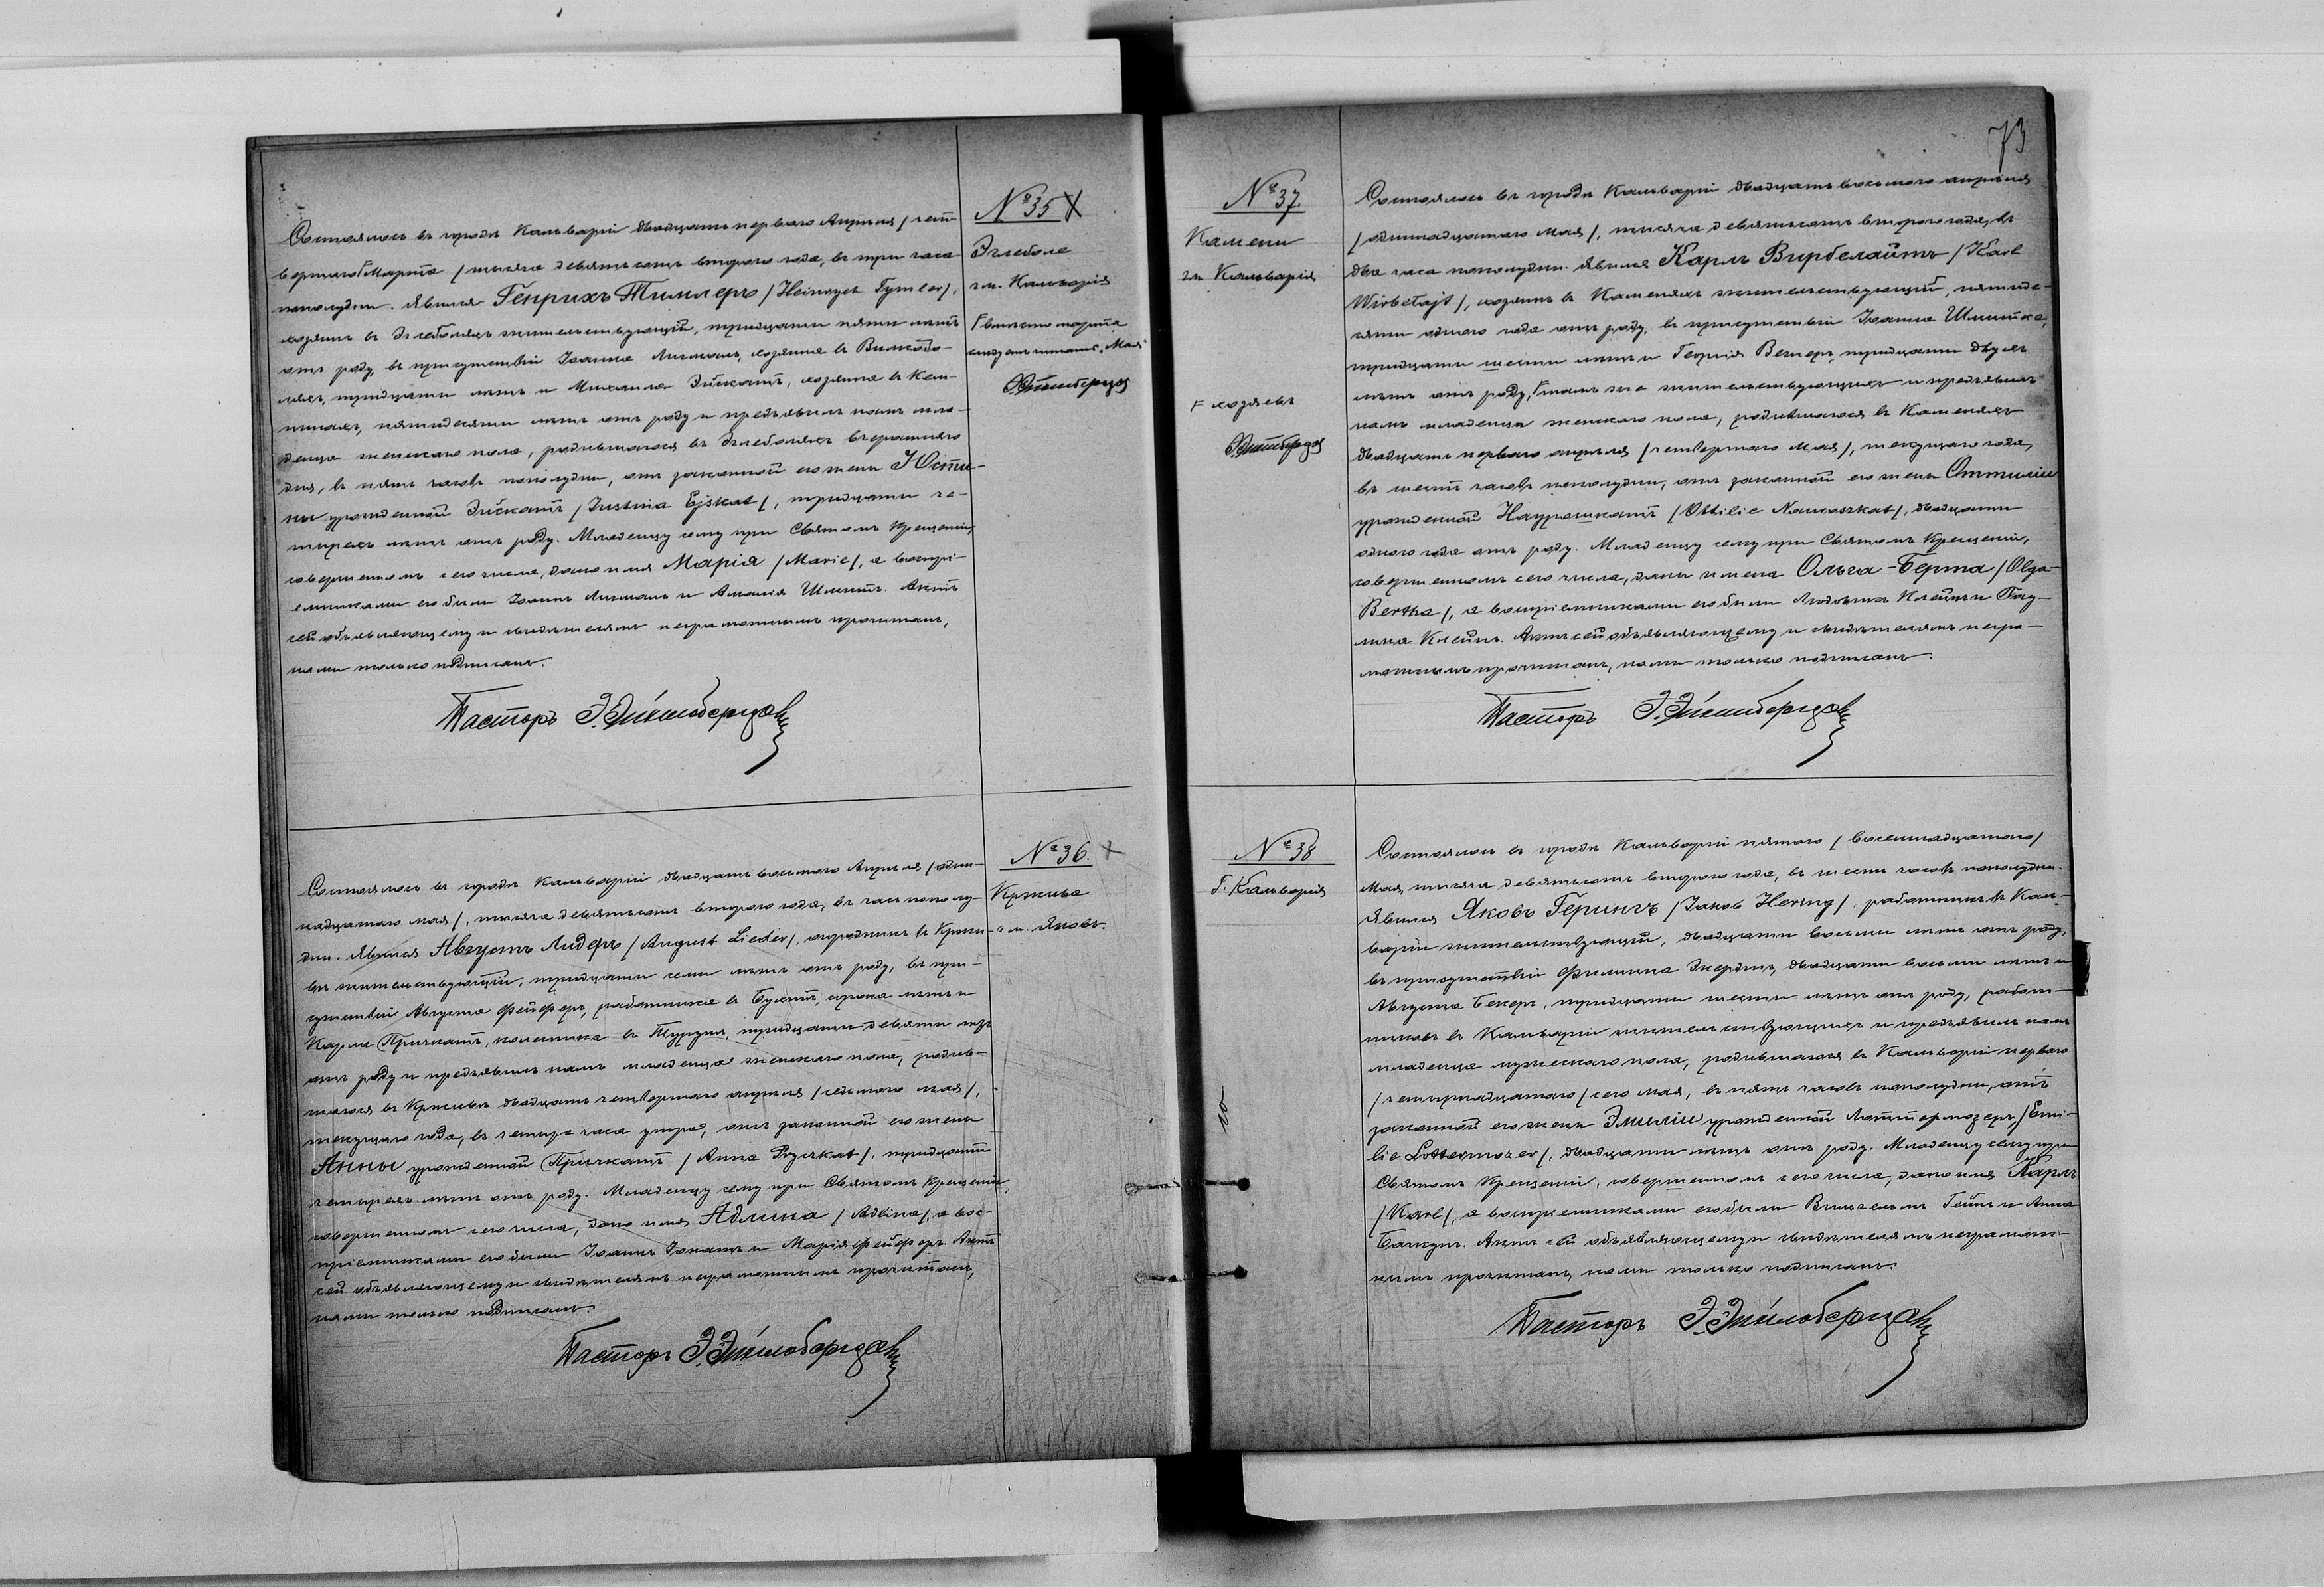 № 35 X
Эглеболе
гм. Кальварія
Г вмѣсто марта
слѣдуетъ читать „Мая“
Состоялось въ городѣ Кальваріи двадцать перваго Апрѣля /чет-
вертаго Г Марта / тысяча девятьсотъ второго года, въ три часа
пополудни. Явился Генрихъ Тимлеръ /Heinrych Tymler/,
хозяинъ въ Эглеболяхъ жительствующій, тридцати пяти лѣтъ
отъ роду, въ присутствіи Іоанна Лигманъ, хозяина въ
тридцати лѣтъ и Михаила Эйскатъ, хозяина въ Кем-
пятидесяти лѣтъ отъ роду и предъявилъ намъ мла-
денца женскаго пола, родившагося въ Эглеболяхъ вчерашняго
дня, въ пять часовъ пополудни, отъ законной его жены Юсти-
ны урожденной Эйскатъ /Justina Ejskat/, тридцати че-
тырехъ лѣтъ отъ роду. Младенцу сему при Святомъ Крещеніи,
совершенномъ сего числа, дано имя Марія /Marie/, а воспрі-
емниками его были Іоаннъ Лигманъ и Амалія Шмитъ. Актъ
сей объявляющему и свидѣтелямъ неграмотнымъ прочитанъ,
нами только подписанъ.
Пасторъ
№ 36. X
Кржива
гм. Яновъ.
Состоялось въ городѣ Кальваріи двадцать восьмого Апрѣля /один-
надцатаго мая/, тысяча девятьсотъ второго года, въ часъ пополу-
дни. Явился Августъ Лидеръ /August Lieder/, огородникъ въ Кржи-
вѣ жительствующій, тридцати семи лѣтъ отъ роду, въ при-
сутствіи Августа Фейферъ, работника въ сорока лѣтъ и
Карла Причкатъ, колониста въ тридцати девяти лѣтъ
отъ роду и предъявилъ намъ младенца женскаго пола, родив-
шагося въ Крживѣ двадцать четвертаго апрѣля /седьмого мая/,
текущаго года, въ четыре часа утра, отъ законной его жены
Анны урожденной Причкатъ /Anna Pryczkat/, тридцати
четырехъ лѣтъ отъ роду. Младенцу сему при Святомъ Крещеніи,
совершенномъ сего числа, дано имя Адлина /Adlina/, а вос-
пріемниками его были Іоаннъ Іонатъ и Марія Фейферъ. Актъ
сей объявляющему и свидѣтелямъ неграмотнымъ прочитанъ,
нами только подписанъ.
Пасторъ
73
№ 37.
Камени
гм Кальварія
Г хозяевъ
Состоялось въ городѣ Кальваріи двадцать восьмого апрѣля
/одиннадцатаго мая/, тысяча девятьсотъ второго года, въ
два часа пополудни. Явился Карлъ Вирбелайтъ /Karl
Wirbelajt/, хозяинъ въ Каменяхъ жительствующій, пятиде-
сяти одного года отъ роду, въ присутствіи Іоанна Шмитке,
тридцати шести лѣтъ и Георгія Вегнеръ, тридцати двухъ
лѣтъ отъ роду, Г тамъ же жительствующихъ и предъявилъ
намъ младенца женскаго пола, родившагося въ Каменяхъ
двадцать перваго апрѣля /четвертаго Мая/, текущаго года,
въ шесть часовъ пополудни, отъ законной его жены Оттиліи
урожденной Наурошкатъ /Ottilie Nauroszkat/, двадцати
одного года отъ роду. Младенцу сему при Святомъ Крещеніи,
совершенномъ сего числа, даны имена Ольга-Берта /Olga-
Bertha/, а воспріемниками его были Людовика Клейнъ и Пау-
лина Клейнъ. Актъ сей объявляющему и свидѣтелямъ негра-
мотнымъ прочитанъ, нами только подписанъ.
Пасторъ
№ 38
Г. Кальварія
Состоялось въ городѣ Кальваріи пятаго /восемнадцатаго/
Мая, тысяча девятьсотъ второго года, въ шесть часовъ пополудни.
Явился Яковъ Герингъ /Jakob Hering/, работникъ въ Каль-
варіи жительствующій, двадцати восьми лѣтъ отъ роду,
въ присутствіи Филиппа двадцати восьми лѣтъ и
Августа Бекеръ, тридцати шести лѣтъ отъ роду, работ-
никовъ въ Кальваріи жительствующихъ и предъявилъ намъ
младенца мужескаго пола, родившагося въ Кальваріи перваго
/четырнадцатаго/ сего мая, въ пять часовъ пополудни, отъ
законной его жены Эмиліи урожденной Лоттермозеръ, /Emi-
lie Lottermozer/, двадцати лѣтъ отъ роду. Младенцу сему при
Святомъ Крещеніи, совершенномъ сего числа, дано имя Карлъ
/Karl/, а воспріемниками его были Вильгельмъ Гейнъ и Анна
Актъ сей объявляющему и свидѣтелямъ неграмот-
нымъ прочитанъ, нами только подписанъ.
Пасторъ